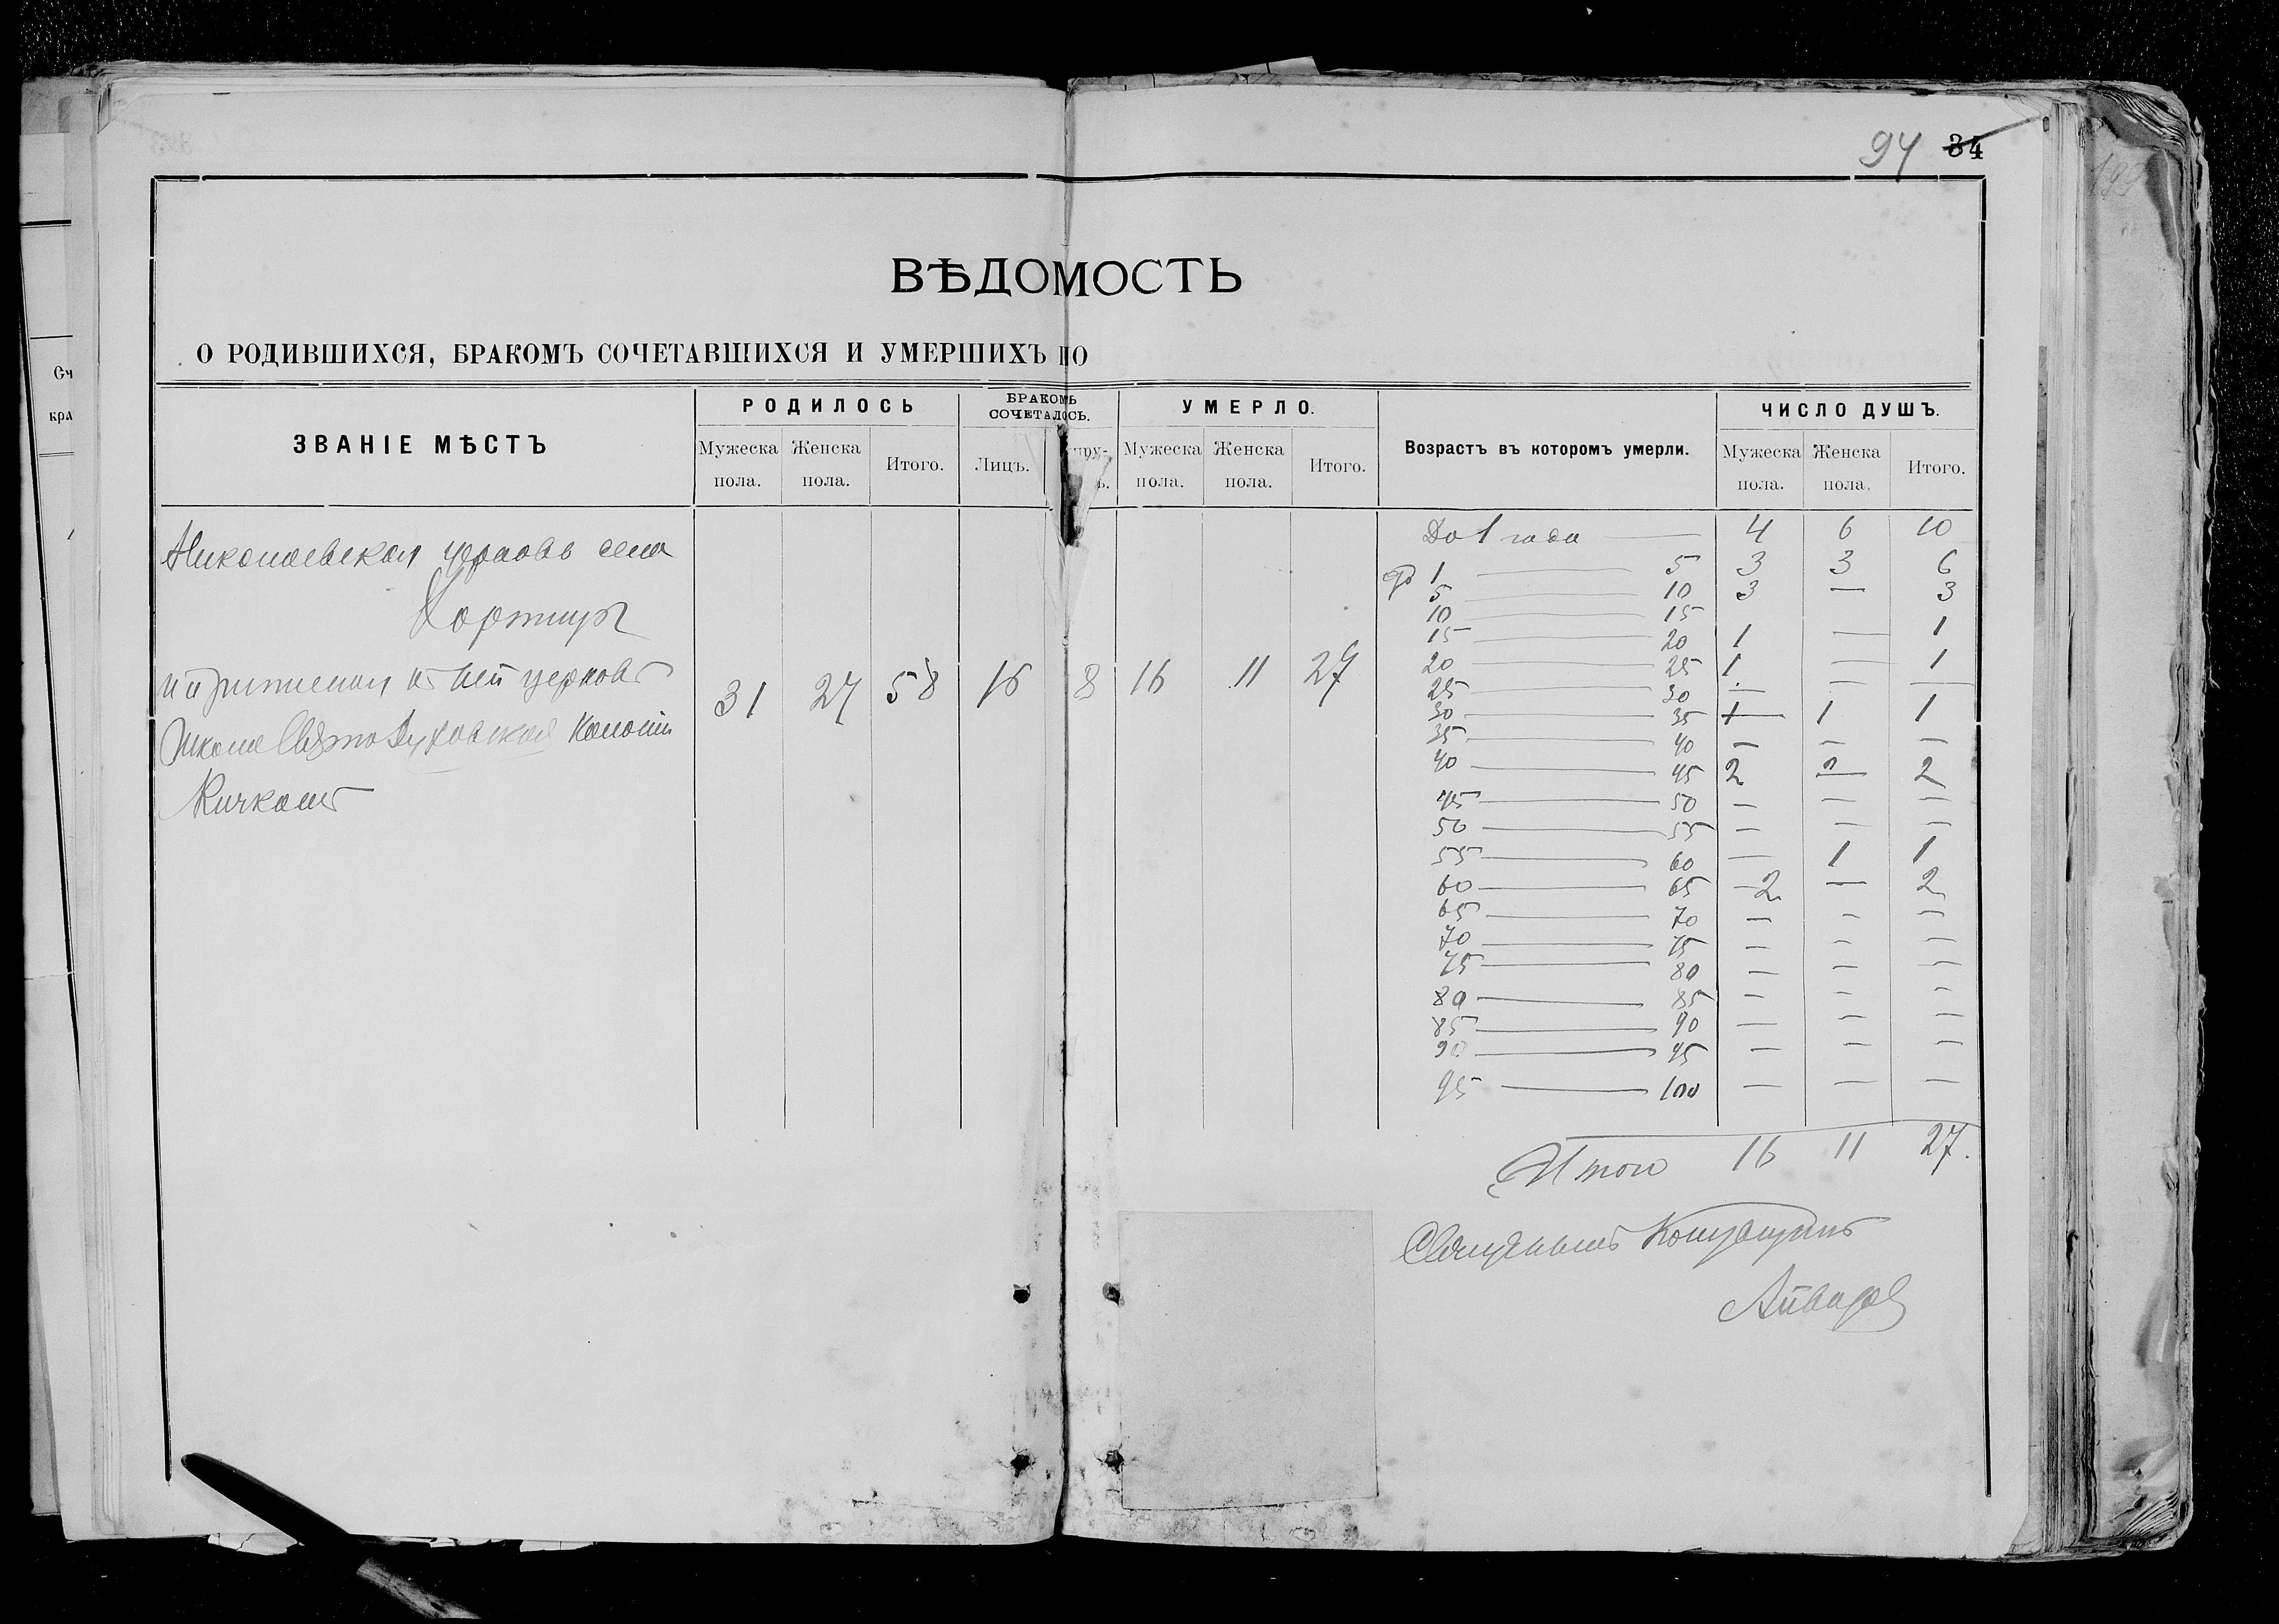 94 34
ВѢДОМОСТЬ
О РОДИВШИХСЯ, БРАКОМЪ СОЧЕТАВШИХСЯ И УМЕРШИХЪ ПО
ЗВАНІЕ МѢСТЪ
РОДИЛОСЬ
Мужеска пола.
Женска пола.
Итого.
БРАКОМЪ СОЧЕТАЛОСЬ.
Лицъ.
УМЕРЛО.
Мужеска пола.
Женска пола.
Итого.
Возрастъ въ которомъ умерли.
ЧИСЛО ДУШЪ.
Мужеска пола.
Женска пола.
Итого.
Николаевская церковь села
Хортицы
церковь
Школа Свято Духовская Колоніи
Кичкасъ
31 27 58 16 8 16 11 27
До 1 года 4 6 10
1 5 3 3 6
5 10 3 — 3
10 15
15 20 1 — 1
20 25 1 — 1
25 30 — — —
30 35 1 1
35 40 — — —
40 45 2 — 2
45 50 — — —
50 55 — — —
55 60 — 1 1
60 65 2 — 2
65 70 — — —
70 75 — — —
75 80 — — —
80 85 — — —
85 90 — — —
90 95 — — —
95 100 — — —
Итого 16 11 27.
Священникъ
Сч
кра